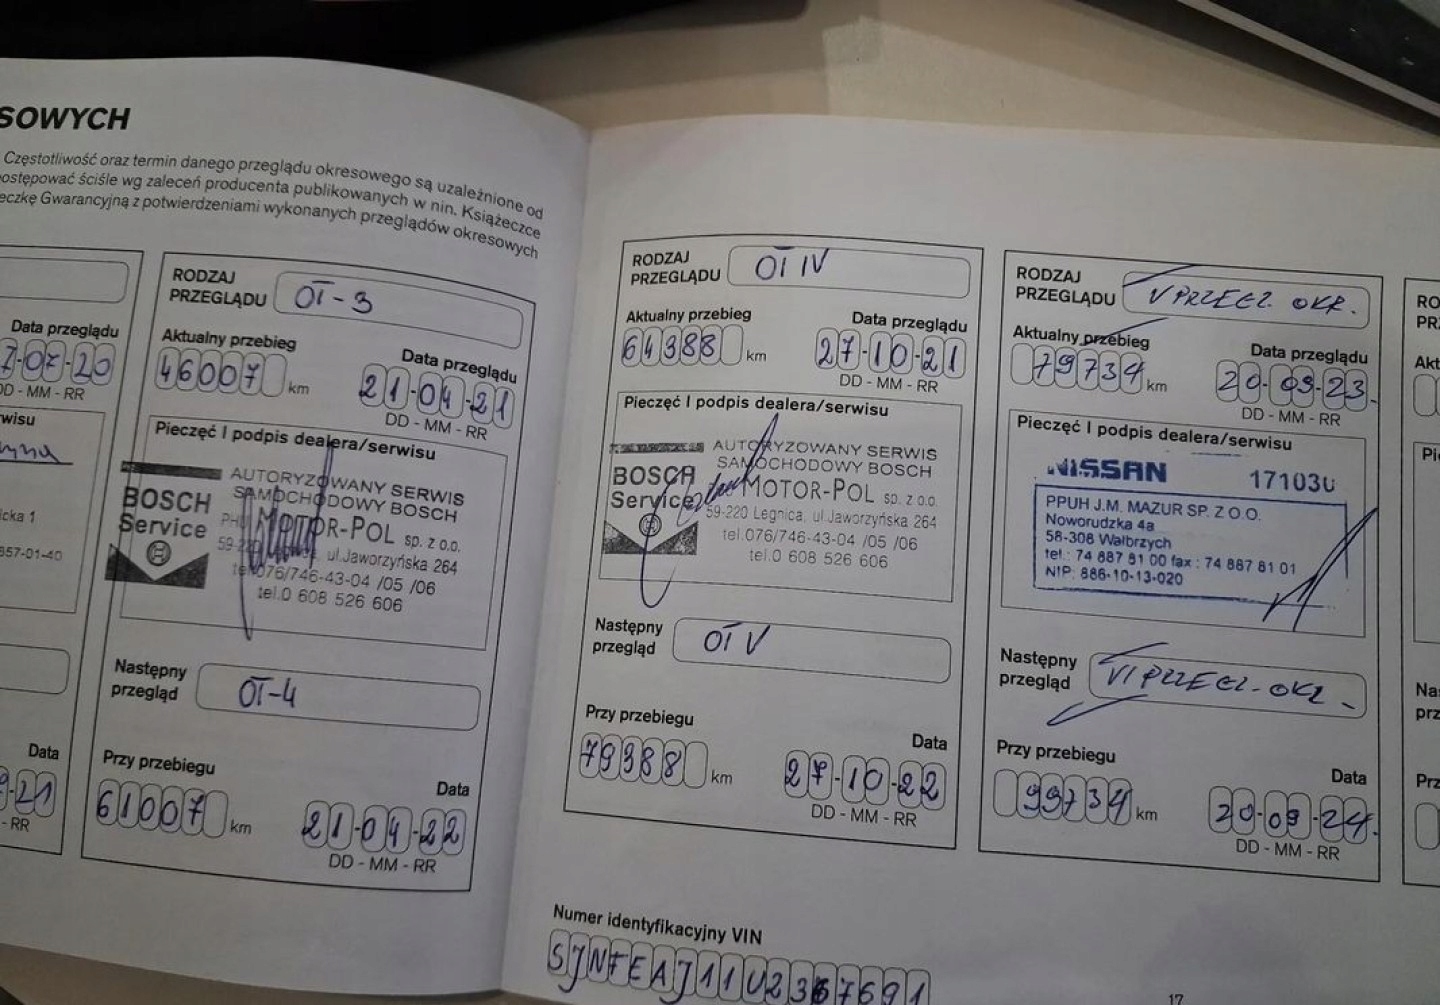 SOWYCH
Częstotliwość oraz termin danego przeglądu okresowego są uzależnione od
ostępować ściśle wg zaleceń producenta publikowanych w nin. Książeczce
eczkę Gwarancyjną z potwierdzeniami wykonanych przeglądów okresowych
Data przeglądu
7-07-20
DD - MM - RR
wisu
icka 1
857-01-40
Data
-21
- RR
RODZAJ
PRZEGLĄDU OT-3
Aktualny przebieg
46007 km
Data przeglądu
21-04-21
DD - MM - RR
Pieczęć I podpis dealera/serwisu
BOSCH
Service
AUTORYZOWANY SERWIS
SAMOCHODOWY BOSCH
PHU MOTOR-POL sp. z o.o.
59-220 Legnica, ul.Jaworzyńska 264
tel.076/746-43-04 /05 /06
tel.0 608 526 606
Następny
przegląd OT-4
Przy przebiegu
61007 km
Data
21-04-22
DD - MM - RR
RODZAJ
PRZEGLĄDU OT IV
Aktualny przebieg
64388 km
Data przeglądu
27-10-21
DD - MM - RR
Pieczęć I podpis dealera/serwisu
BOSCH
Service
AUTORYZOWANY SERWIS
SAMOCHODOWY BOSCH
MOTOR-POL sp. z o.o.
59-220 Legnica, ul.Jaworzyńska 264
tel.076/746-43-04 /05 /06
tel.0 608 526 606
Następny
przegląd OT V
Przy przebiegu
79388 km
Data
27-10-22
DD - MM - RR
RODZAJ
PRZEGLĄDU V PRZEGL. OKR.
Aktualny przebieg
79734 km
Data przeglądu
20-09-23.
DD - MM - RR
Pieczęć I podpis dealera/serwisu
NISSAN 171030
PPUH J.M. MAZUR SP. Z O.O.
Noworudzka 4a
58-308 Wałbrzych
tel.: 74 887 81 00 fax : 74 887 81 01
NIP: 886-10-13-020
Następny
przegląd VI PRZEGL. OKR.
Przy przebiegu
99734 km
Data
20-09-24.
DD - MM - RR
RO
PR
Akt
Pi
Na
prz
Prz
Numer identyfikacyjny VIN
SJNFEAJ11U2367691
17